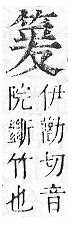 伊勸切音
院斷竹也